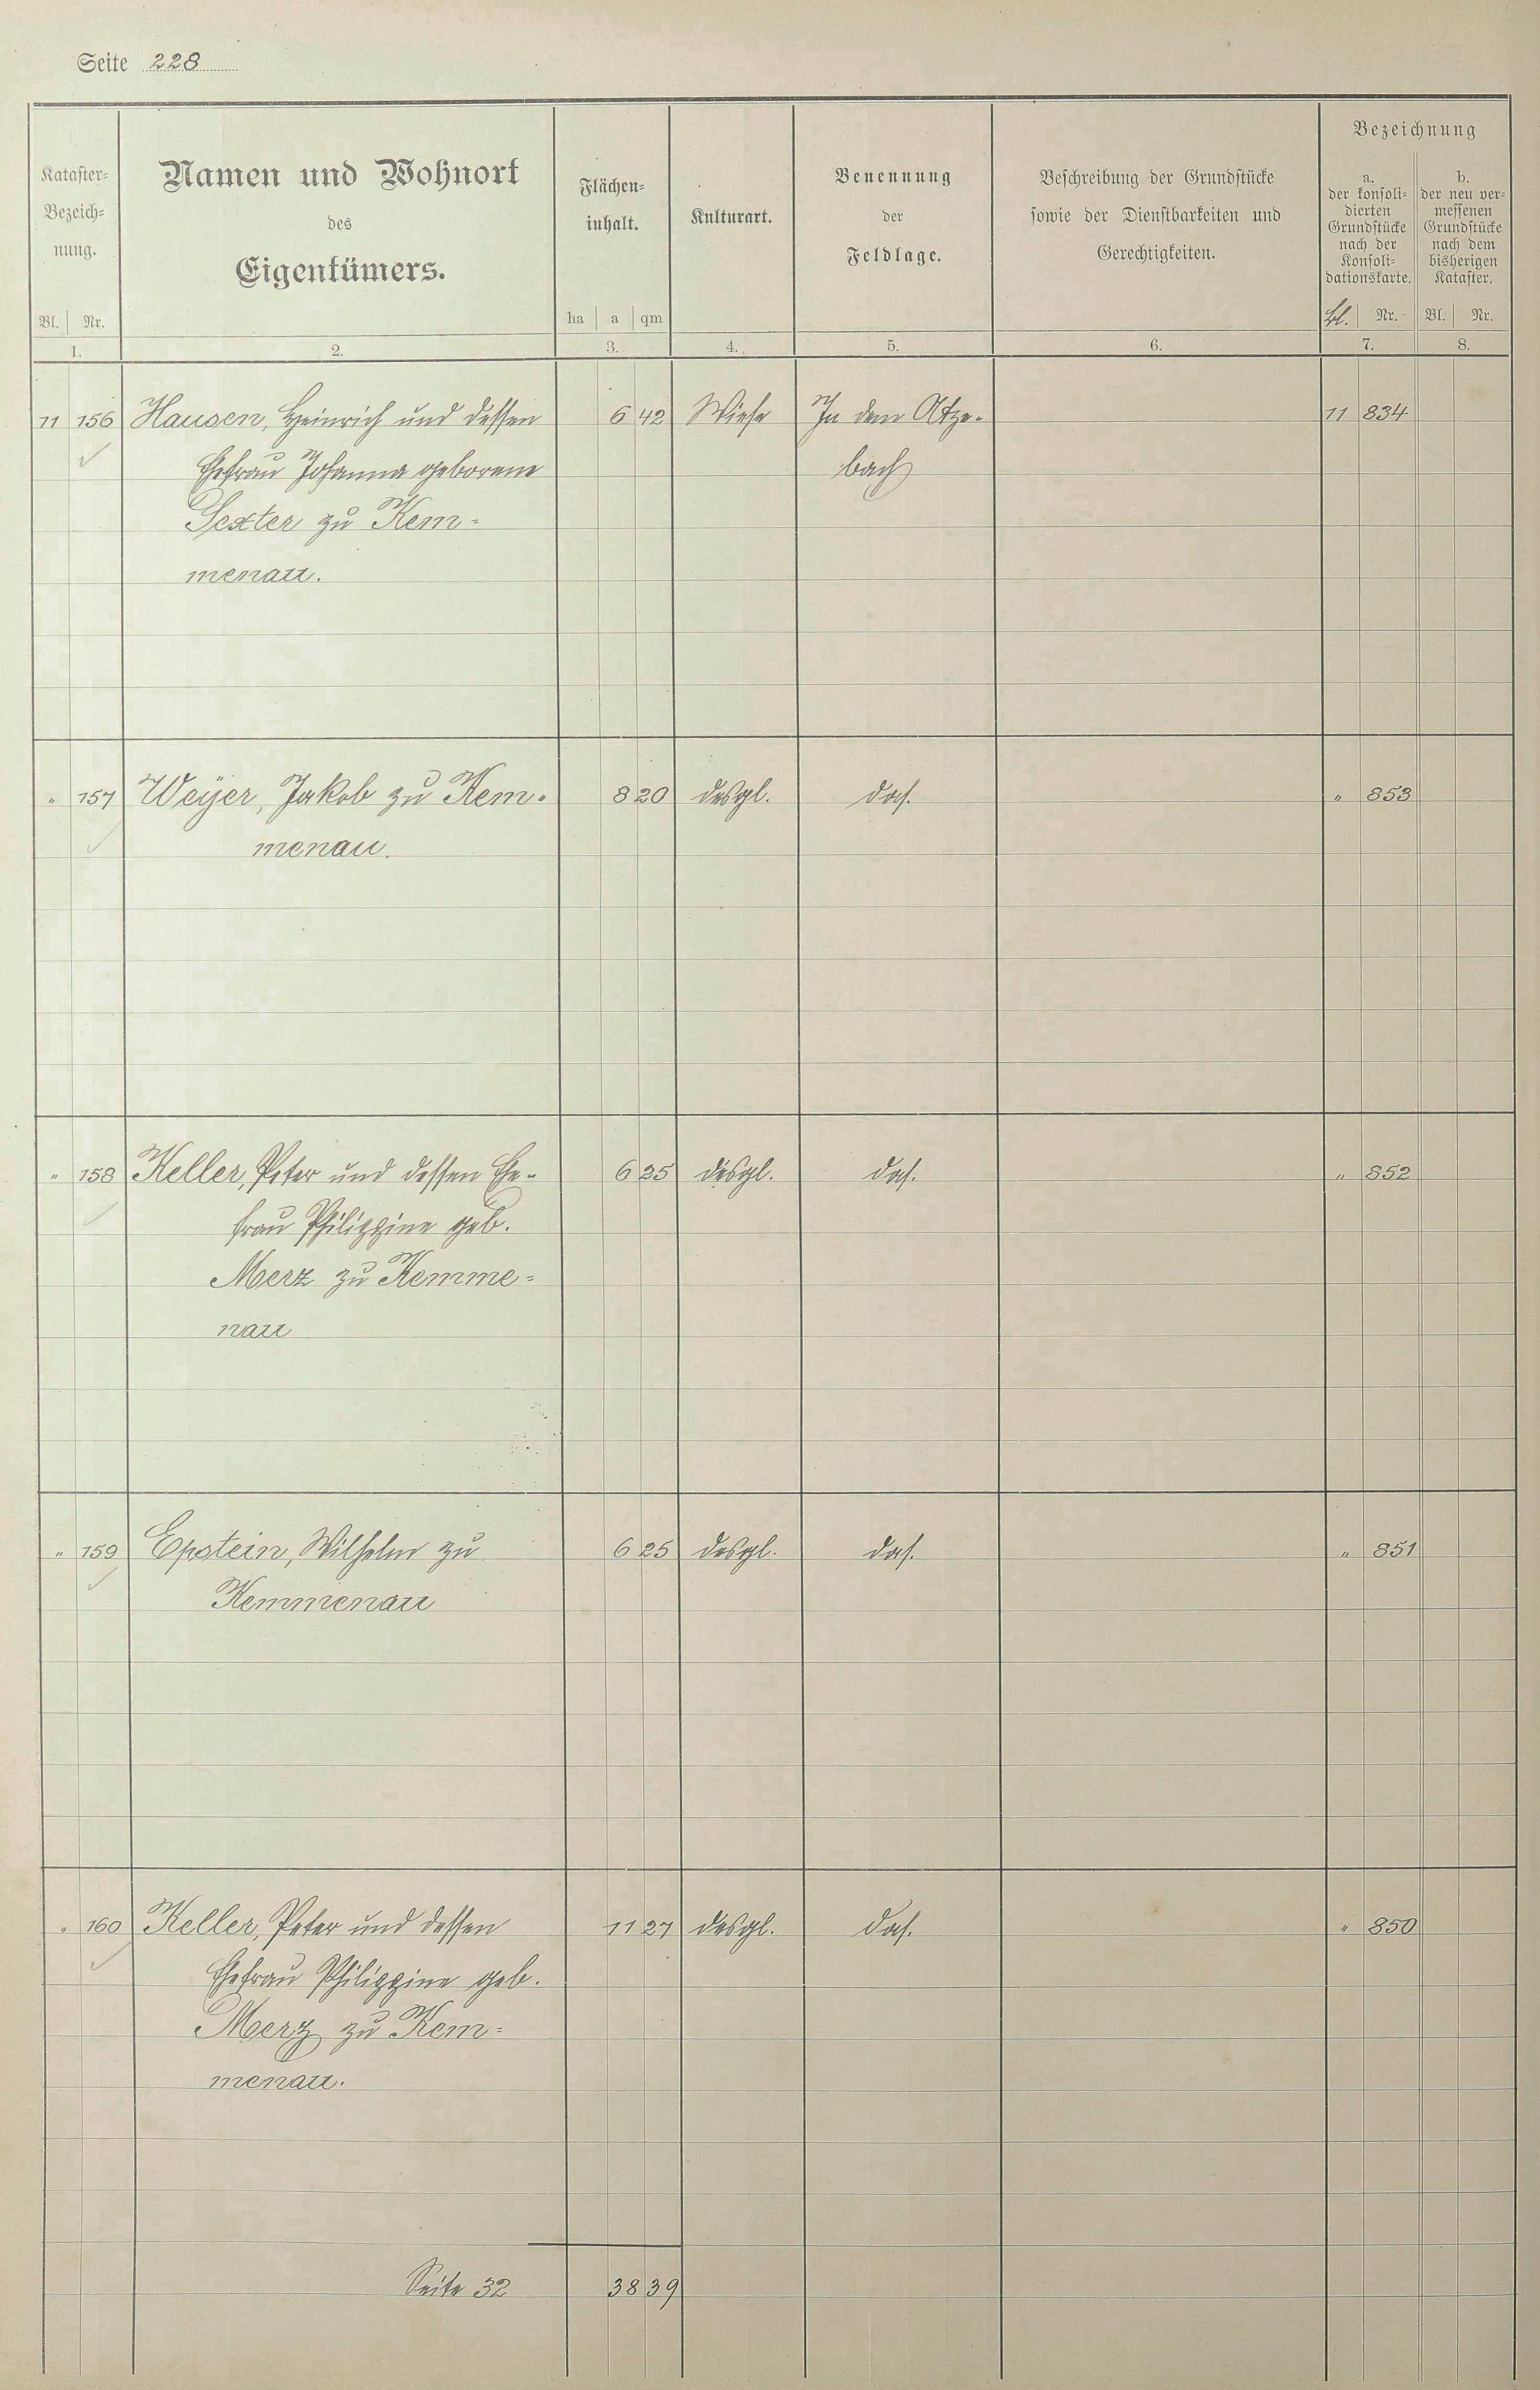 Seite 228
Kataster-
Bezeich-
nung.
Bl. Nr.
1.
Namen und Wohnort
des
Eigentümers.
2.
Flächen-
inhalt.
ha a qm
3.
Kulturart.
4.
Benennung
der
Feldlage.
5.
Beschreibung der Grundstücke
sowie der Dienstbarkeiten und
Gerechtigkeiten.
6.
Bezeichnung
a.
der konsoli-
dierten
Grundstücke
nach der
Konsoli-
dationskarte.
Bl. Nr.
7.
b.
der neu ver-
messenen
Grundstücke
nach dem
bisherigen
Kataster.
Bl. Nr.
8.
11 156 Hausen, Heinrich und dessen 6 42 Wiese In dem Atze- 11 834
Ehefrau Johanna geborene bach
Sexter zu Kem-
menau.
" 157 Weyer, Jakob zu Kem- 8 20 desgl. das. " 853
menau.
" 158 Keller, Peter und dessen Ehe- 6 25 desgl. das. " 852
frau Philippine geb.
Merz zu Kemme-
nau
" 159 Epstein, Wilhelm zu 6 25 desgl. das. " 851
Kemmenau
" 160 Keller, Peter und dessen 11 27 desgl. das. " 850
Ehefrau Philippine geb.
Merz zu Kem-
menau.
Seite 32 38 39